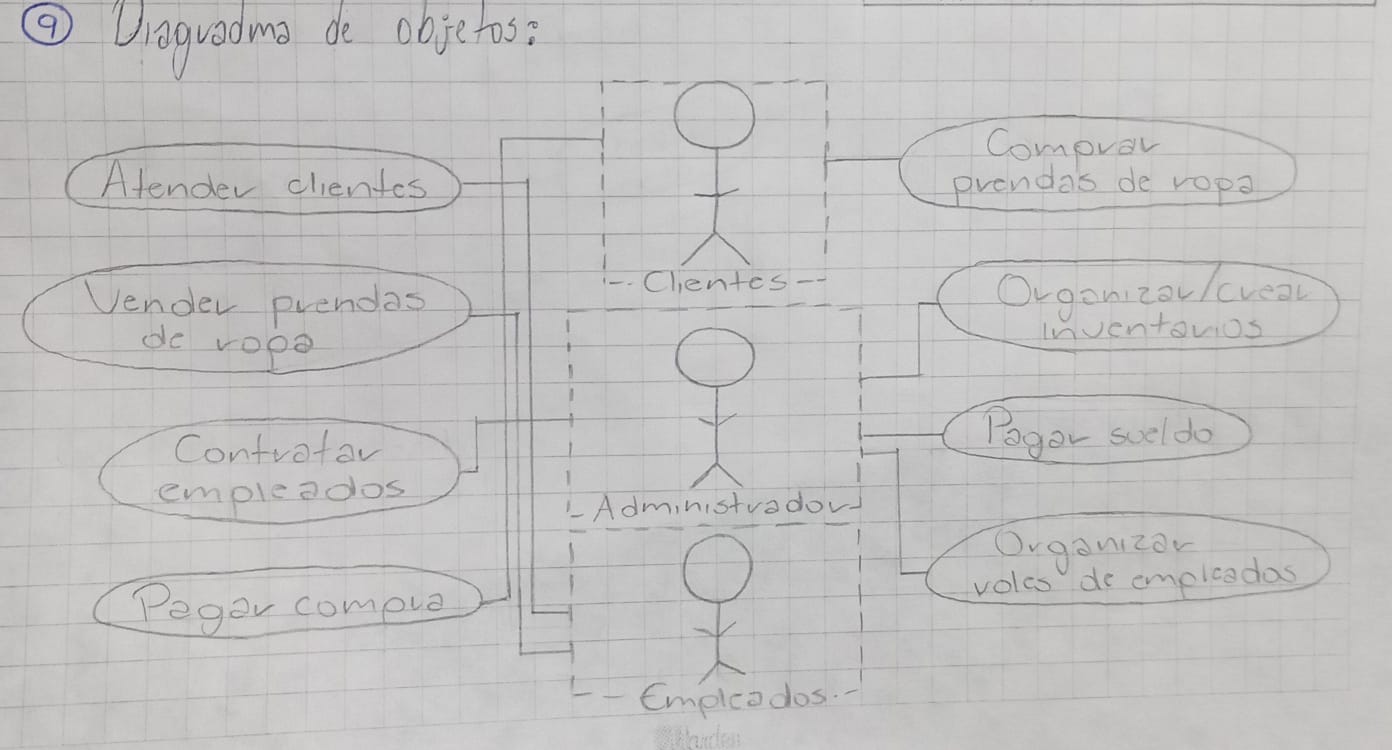 9 Diagradma de objetos:
Atender clientes
Vender prendas
de ropa
Contratar
empleados
Pagar compra
Clientes
Administrador
Empleados
Comprar
prendas de ropa
Organizar/crear
inventarios
Pagar sueldo
Organizar
roles de empleados